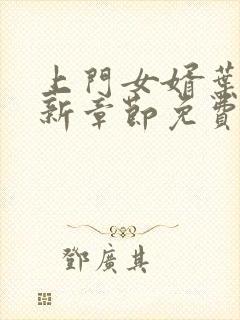 上門女婿葉
新章節免費
鄧廣其